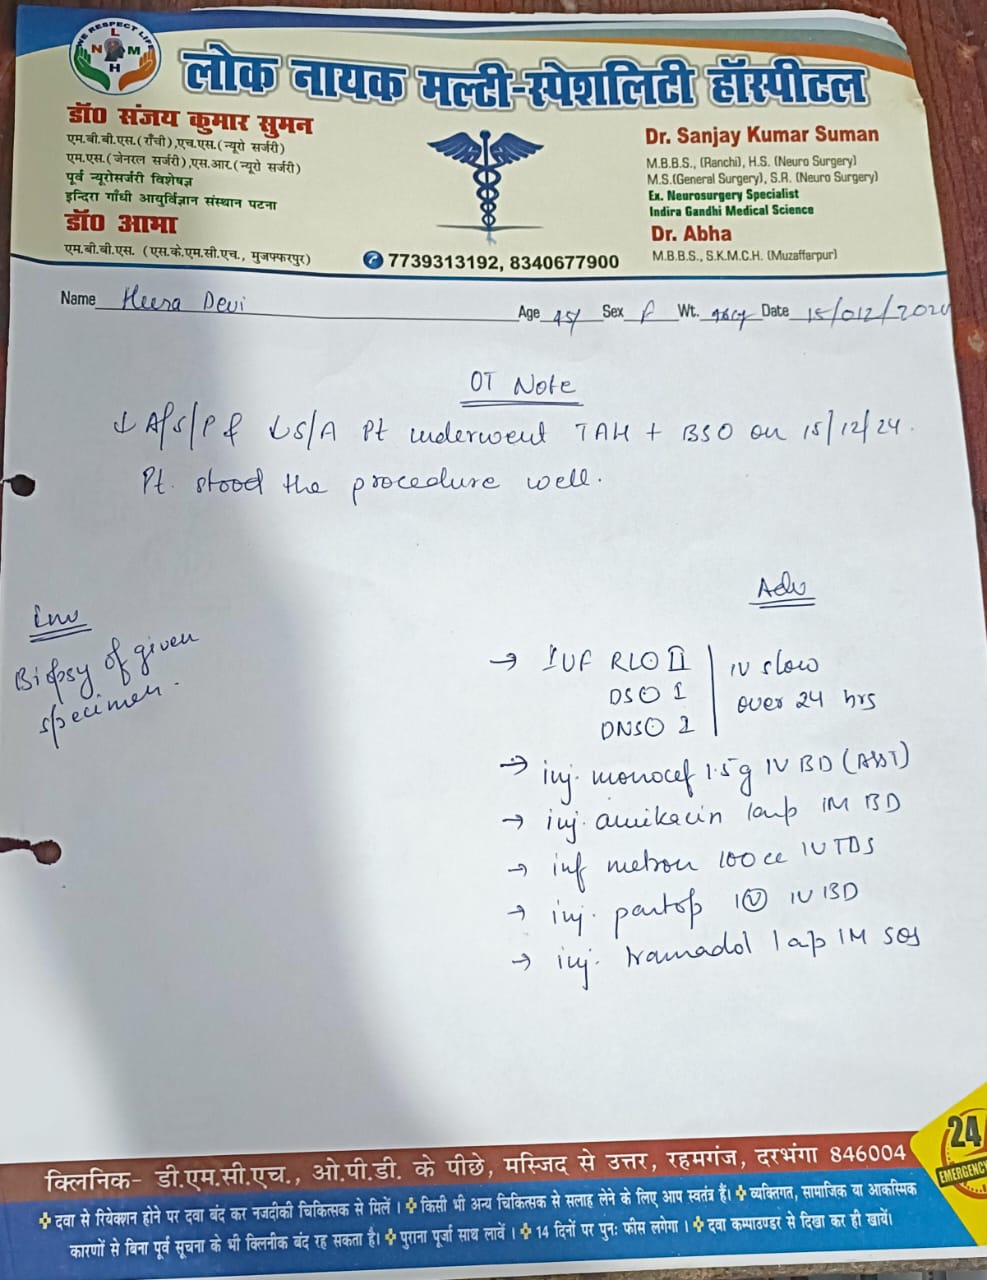 WE RESPECT LIFE
L N M H
लोक नायक मल्टी-स्पेशलिटी हॉस्पीटल
डॉ0 संजय कुमार सुमन
एम.बी.बी.एस.(राँची),एच.एस.(न्यूरो सर्जरी)
एम.एस.(जेनरल सर्जरी),एस.आर.(न्यूरो सर्जरी)
पूर्व न्यूरोसर्जरी विशेषज्ञ
इन्दिरा गाँधी आयुर्विज्ञान संस्थान पटना
डॉ0 आभा
एम.बी.बी.एस. (एस.के.एम.सी.एच., मुजफ्फरपुर)
Dr. Sanjay Kumar Suman
M.B.B.S., (Ranchi), H.S. (Neuro Surgery)
M.S.(General Surgery), S.R. (Neuro Surgery)
Ex. Neurosurgery Specialist
Indira Gandhi Medical Science
Dr. Abha
M.B.B.S., S.K.M.C.H. (Muzaffarpur)
7739313192, 8340677900
Name Heera Devi Age 45 Sex F Wt. Date 15/012/2024
OT Note
↓ A/S/P & ↓ S/A Pt underwent TAH + BSO on 15/12/24.
Pt. stood the procedure well.
Inv
Biopsy of given
specimen.
Adv
→ IVF RLO II IV slow
DSO 1 over 24 hrs
DNSO 1
→ inj. monocef 1.5g IV BD (AST)
→ inj. amikacin 1amp IM BD
→ inf metron 100cc IV TDS
→ inj. pantop 1V IV BD
→ inj. tramadol 1 ap IM SOS
24
EMERGENCY
क्लिनिक- डी.एम.सी.एच., ओ.पी.डी. के पीछे, मस्जिद से उत्तर, रहमगंज, दरभंगा 846004
✤ दवा से रियेक्शन होने पर दवा बंद कर नजदीकी चिकित्सक से मिलें । ✤ किसी भी अन्य चिकित्सक से सलाह लेने के लिए आप स्वतंत्र हैं। ✤ व्यक्तिगत, सामाजिक या आकस्मिक
कारणों से बिना पूर्व सूचना के भी क्लिनीक बंद रह सकता है। ✤ पुराना पूर्जा साथ लावें । ✤ 14 दिनों पर पुन: फीस लगेगा । ✤ दवा कम्पाउण्डर से दिखा कर ही खायें।